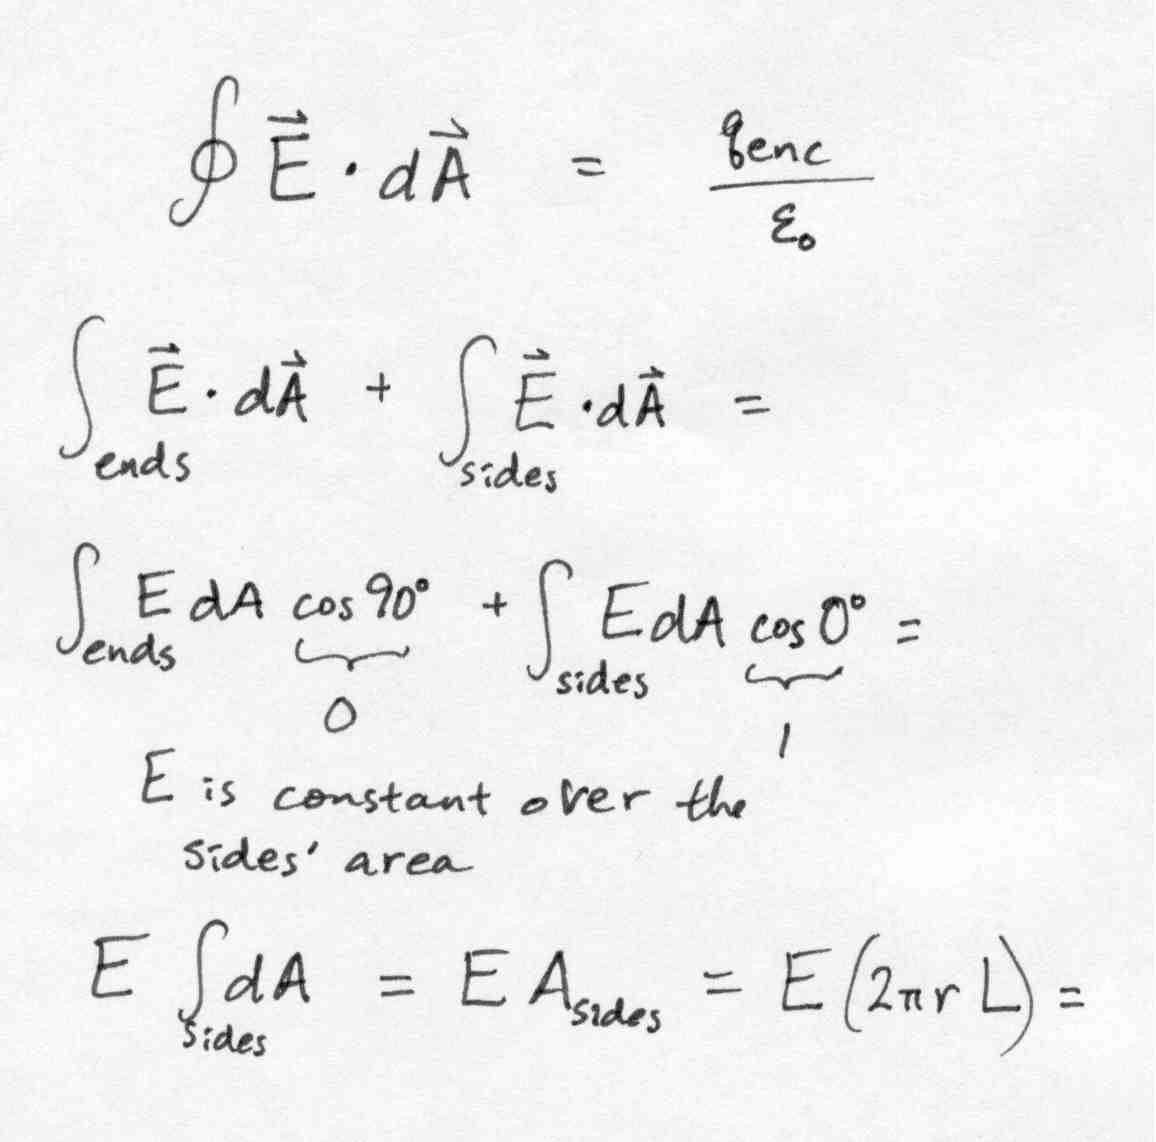 ∮ E⃗ · dA⃗ = qenc / ε₀
∫ends E⃗ · dA⃗ + ∫sides E⃗ · dA⃗ =
∫ends E dA cos 90° + ∫sides E dA cos 0° =
0 1
E is constant over the
sides' area
E ∫sides dA = E Asides = E (2πr L) =